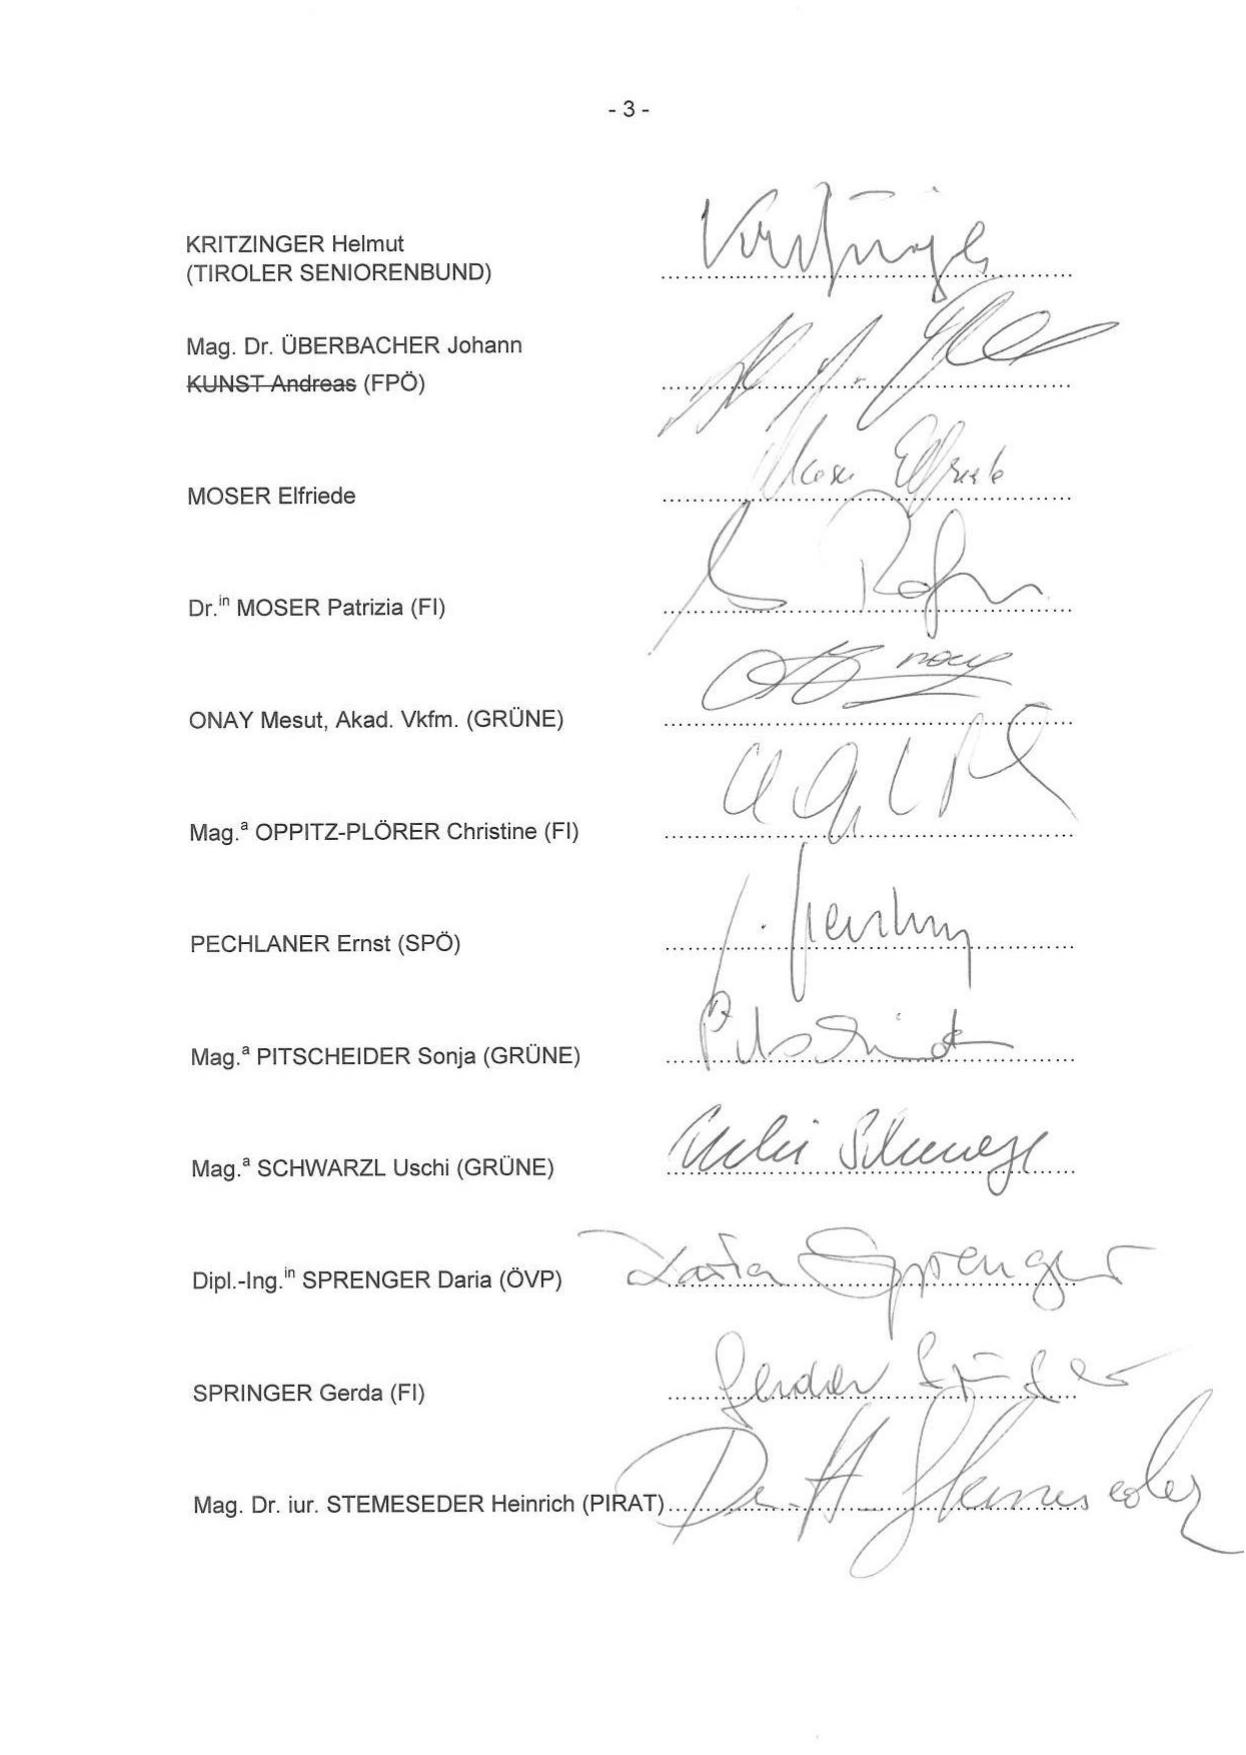 - 3 -
KRITZINGER Helmut
(TIROLER SENIORENBUND)
Mag. Dr. ÜBERBACHER Johann
KUNST Andreas (FPÖ)
Moser Elfriede
MOSER Elfriede
Dr.in MOSER Patrizia (FI)
ONAY Mesut, Akad. Vkfm. (GRÜNE)
Mag.a OPPITZ-PLÖRER Christine (FI)
PECHLANER Ernst (SPÖ)
Mag.a PITSCHEIDER Sonja (GRÜNE)
Mag.a SCHWARZL Uschi (GRÜNE)
Daria Sprenger
Dipl.-Ing.in SPRENGER Daria (ÖVP)
Gerda Springer
SPRINGER Gerda (FI)
Mag. Dr. iur. STEMESEDER Heinrich (PIRAT) Dr. H. Stemeseder